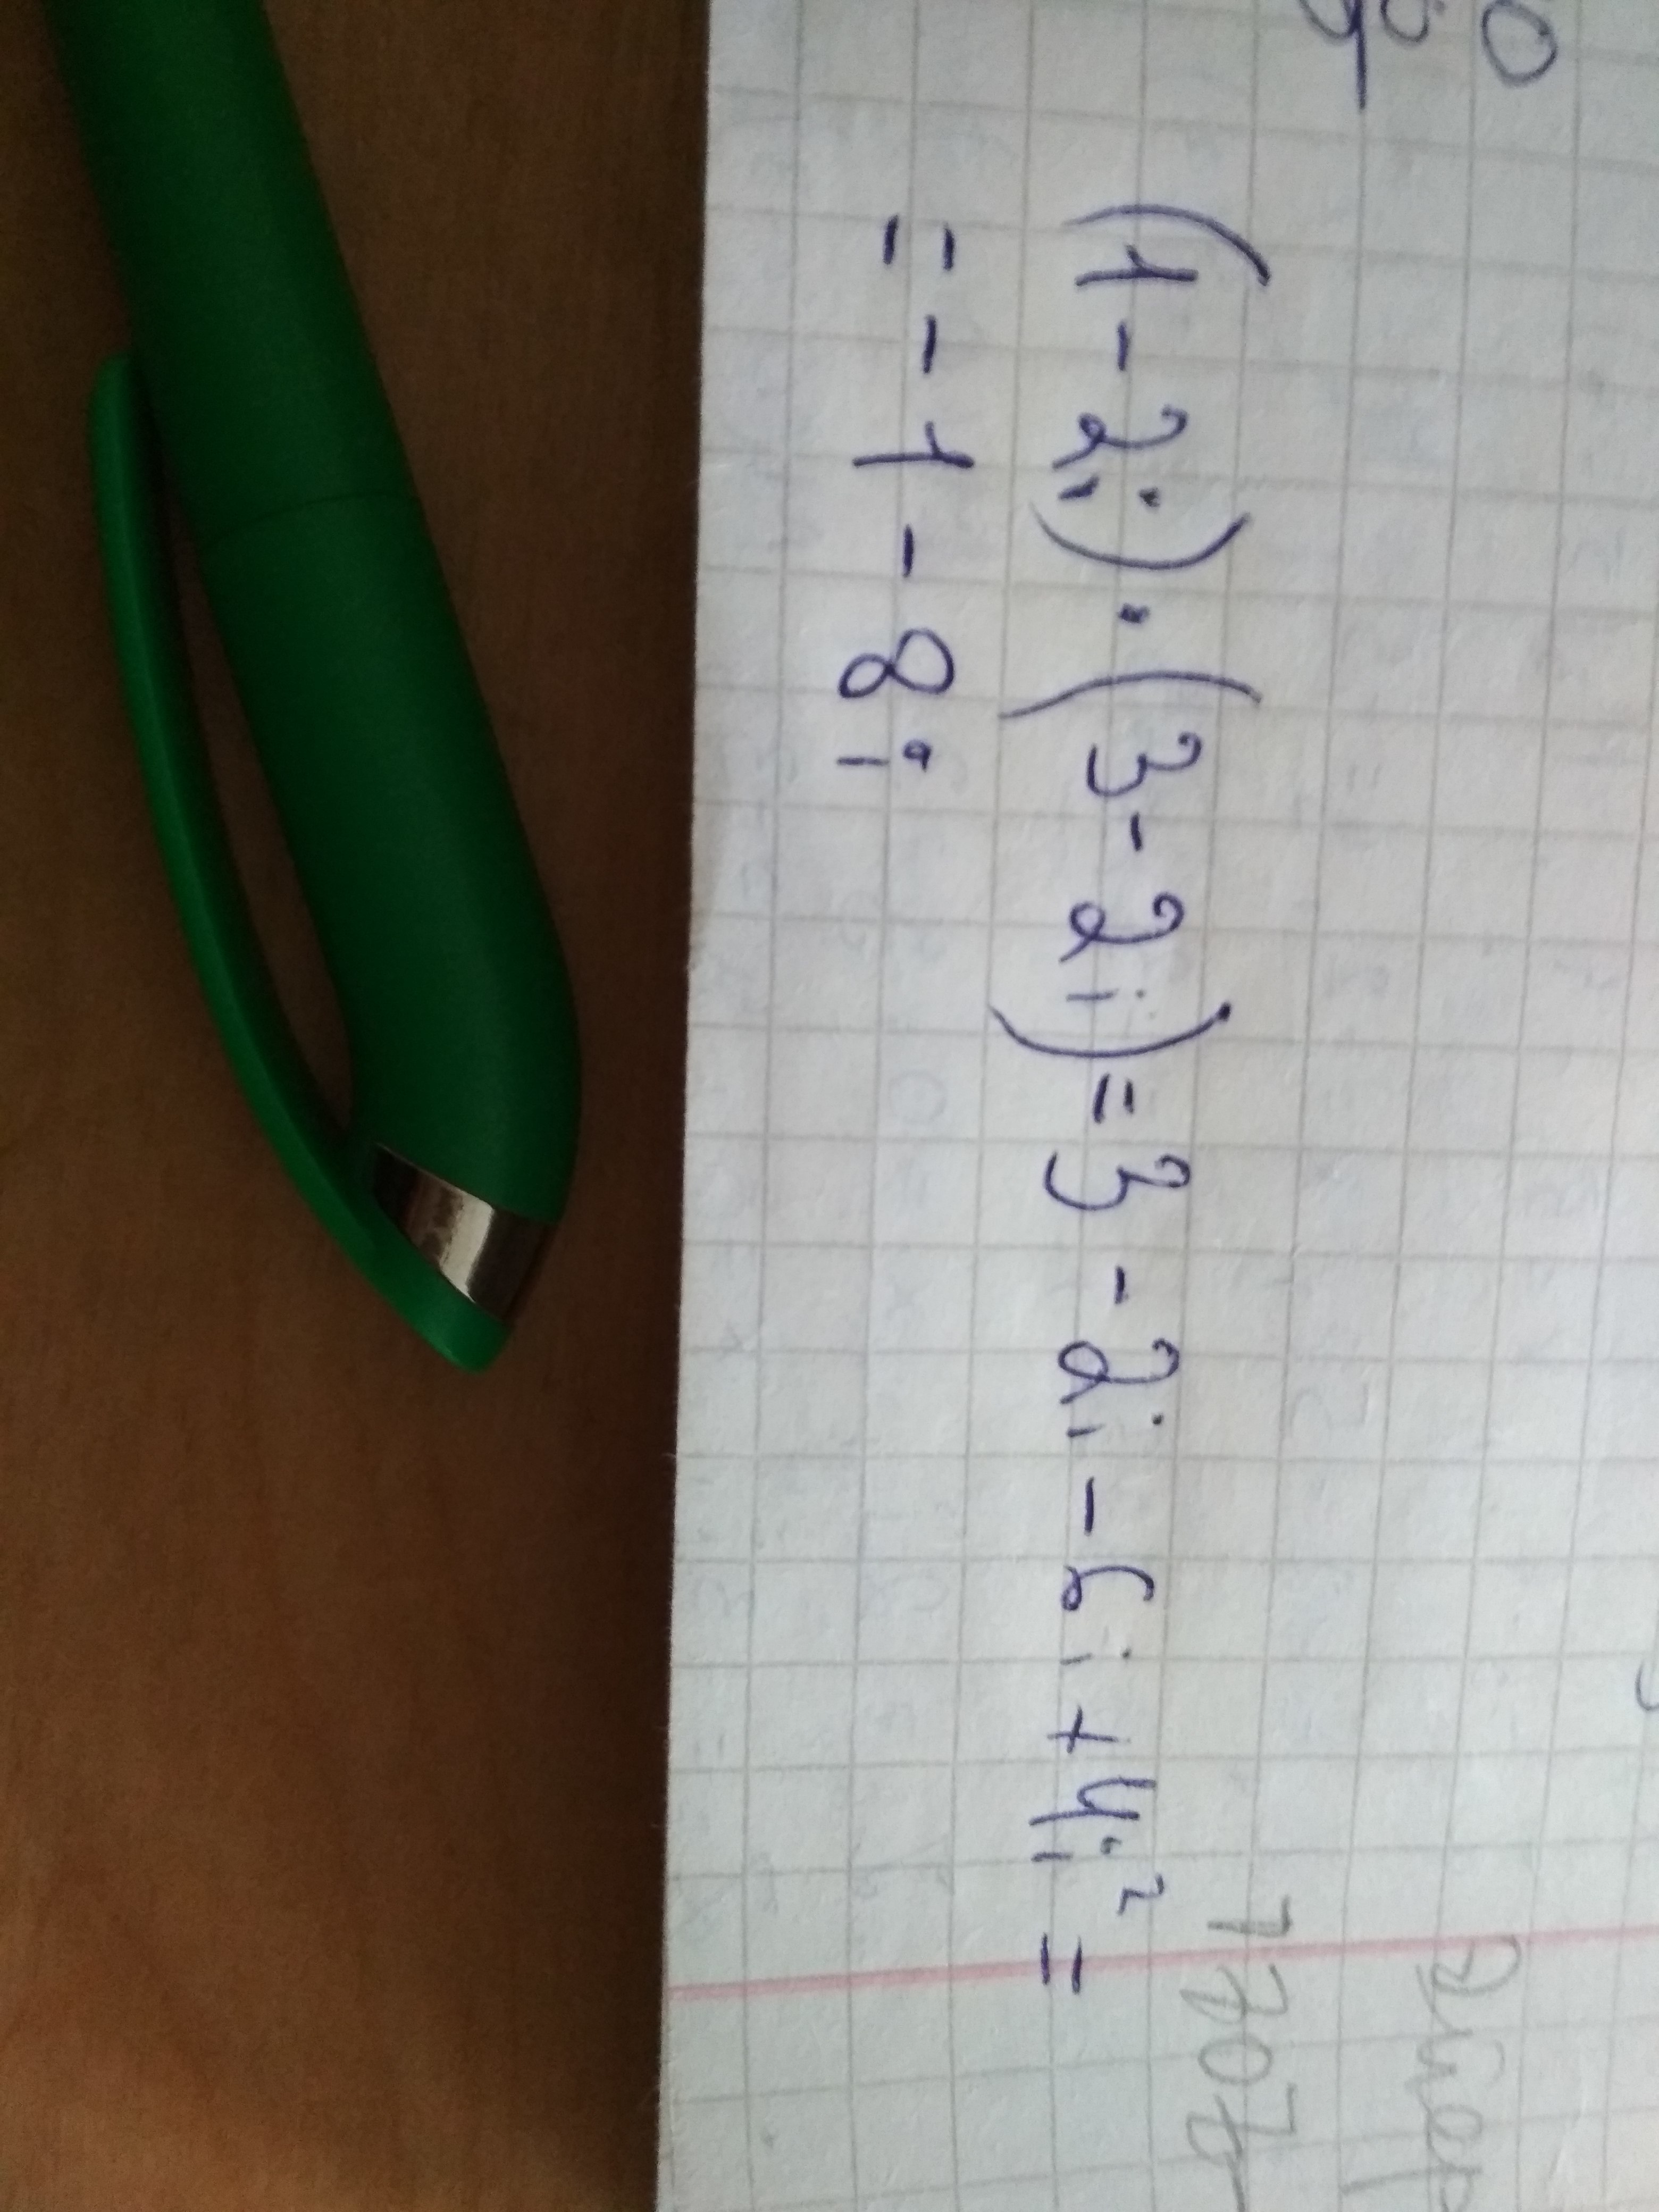 (1-2i)·(3-2i)=3-2i-6i+4i²=
=-1-8i